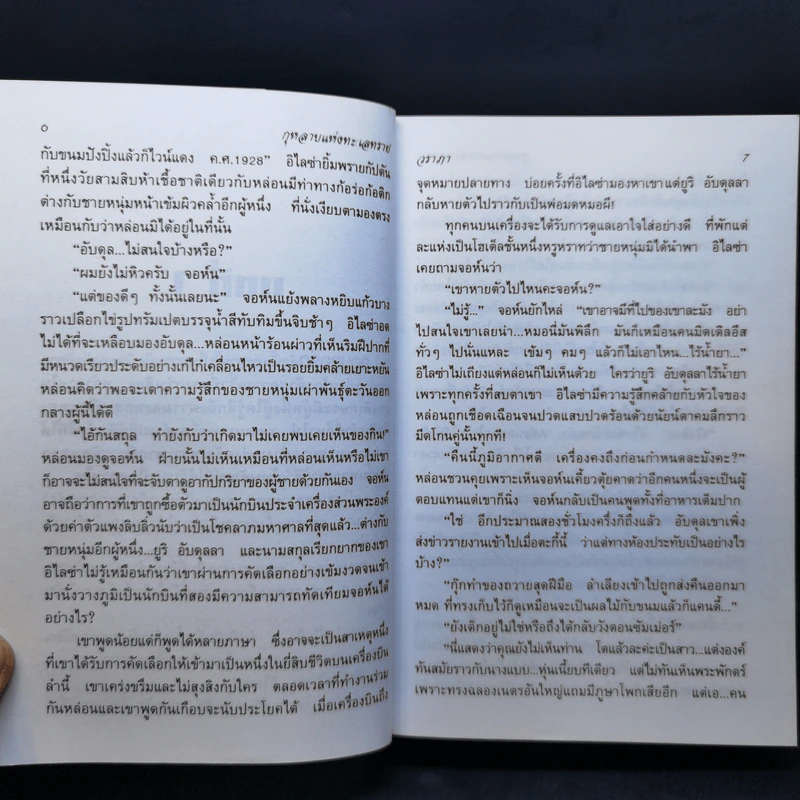 ๖
กุหลาบแห่งทะเลทราย
กับขนมปังปิ้งแล้วก็ไวน์แดง ค.ศ.1928” อิไลซ่ายิ้มพรายกัปตัน
ที่หนึ่งวัยสามสิบห้าเชื้อชาติเดียวกับหล่อนมีท่าทางก้อร่อก้อติก
ต่างกับชายหนุ่มหน้าเข้มผิวคล้ำอีกผู้หนึ่ง ที่นั่งเงียบตามองตรง
เหมือนกับว่าหล่อนมิได้อยู่ในที่นั้น
“อับดุล...ไม่สนใจบ้างหรือ?”
“ผมยังไม่หิวครับ จอห์น”
“แต่ของดีๆ ทั้งนั้นเลยนะ” จอห์นแย้งพลางหยิบแก้วบาง
ราวเปลือกไข่รูปทรัมเปตบรรจุน้ำสีทับทิมขึ้นจิบช้าๆ อิไลซ่าอด
ไม่ได้ที่จะเหลือบมองอับดุล...หล่อนหน้าร้อนผ่าวที่เห็นริมฝีปากที่
มีหนวดเรียวประดับอย่างเก๋ไก๋เคลื่อนไหวเป็นรอยยิ้มคล้ายเยาะหยัน
หล่อนคิดว่าพอจะเดาความรู้สึกของชายหนุ่มเผ่าพันธุ์ตะวันออก
กลางผู้นี้ได้ดี
“ไอ้กันสถุล ทำยังกับว่าเกิดมาไม่เคยพบเคยเห็นของกิน!”
หล่อนมองดูจอห์น ฝ่ายนั้นไม่เห็นเหมือนที่หล่อนเห็นหรือไม่เขา
ก็อาจจะไม่สนใจที่จะจับตาดูอากัปกิริยาของผู้ชายด้วยกันเอง จอห์น
อาจถือว่าการที่เขาถูกซื้อตัวมาเป็นนักบินประจำเครื่องส่วนพระองค์
ด้วยค่าตัวแพงลิบลิ่วนับว่าเป็นโชคลาภมหาศาลที่สุดแล้ว...ต่างกับ
ชายหนุ่มอีกผู้หนึ่ง...ยูริ อับดุลลา และนามสกุลเรียกยากของเขา
อิไลซ่าไม่รู้เหมือนกันว่าเขาผ่านการคัดเลือกอย่างเข้มงวดจนเข้า
มานั่งวางภูมิเป็นนักบินที่สองมีความสามารถทัดเทียมจอห์นได้
อย่างไร?
เขาพูดน้อยแต่ก็พูดได้หลายภาษา ซึ่งอาจจะเป็นสาเหตุหนึ่ง
ที่เขาได้รับการคัดเลือกให้เข้ามาเป็นหนึ่งในยี่สิบชีวิตบนเครื่องบิน
ลำนี้ เขาเคร่งขรึมและไม่สูงสิงกับใคร ตลอดเวลาที่ทำงานร่วม
กันหล่อนและเขาพูดกันเกือบจะนับประโยคได้ เมื่อเครื่องบินถึง
วราภา
7
จุดหมายปลายทาง บ่อยครั้งที่อิไลซ่ามองหาเขาแต่ยูริ อับดุลลา
กลับหายตัวไปราวกับเป็นพ่อมดหมอผี!
ทุกคนบนเครื่องจะได้รับการดูแลเอาใจใส่อย่างดี ที่พักแต่
ละแห่งเป็นโฮเต็ลชั้นหนึ่งหรูหราทว่าชายหนุ่มมิได้นำพา อิไลซ่า
เคยถามจอห์นว่า
“เขาหายตัวไปไหนคะจอห์น?”
“ไม่รู้...” จอห์นยักไหล่ “เขาอาจมีที่ไปของเขาละมัง อย่า
ไปสนใจเขาเลยน่า...หมอนี่มันพิลึก มันก็เหมือนคนมิดเดิลอีส
ทั่วๆ ไปนั่นแหละ เข้มๆ คมๆ แล้วก็ไม่เอาไหน...ไร้น้ำยา...”
อิไลซ่าไม่เถียงแต่หล่อนก็ไม่เห็นด้วย ใครว่ายูริ อับดุลลาไร้น้ำยา
เพราะทุกครั้งที่สบตาเขา อิไลซ่ามีความรู้สึกคล้ายกับหัวใจของ
หล่อนถูกเชือดเฉือนจนปวดแสบปวดร้อนด้วยนัยน์ตาคมลึกราว
มีดโกนคู่นั้นทุกที!
“คืนนี้ภูมิอากาศดี เครื่องคงถึงก่อนกำหนดละมังคะ?”
หล่อนชวนคุยเพราะเห็นจอห์นเคี้ยวตุ้ยคาดว่าอีกคนหนึ่งจะเป็นผู้
ตอบแทนแต่เขาก็นิ่ง จอห์นกลับเป็นคนพูดทั้งที่อาหารเต็มปาก
“ใช่ อีกประมาณสองชั่วโมงครึ่งก็ถึงแล้ว อับดุลเขาเพิ่ง
ส่งข่าวรายงานเข้าไปเมื่อตะกี้นี้ ว่าแต่ทางห้องประทับเป็นอย่างไร
บ้าง?”
“กุ๊กทำของถวายสุดฝีมือ ลำเลียงเข้าไปถูกส่งคืนออกมา
หมด ที่ทรงเก็บไว้ก็ดูเหมือนจะเป็นผลไม้กับขนมแล้วก็แคนดี้...”
“ยังเด็กอยู่ไม่ใช่หรือถึงได้กลับวังตอนซัมเม่อร์”
“นี่แสดงว่าคุณยังไม่เห็นท่าน โตแล้วละค่ะเป็นสาว...แต่งองค์
ทันสมัยราวกับนางแบบ...หุ่นเนี้ยบทีเดียว แต่ไม่ทันเห็นพระพักตร์
เพราะทรงฉลองเนตรอันใหญ่แถมมีภูษาโพกเสียอีก แต่เอ...คน